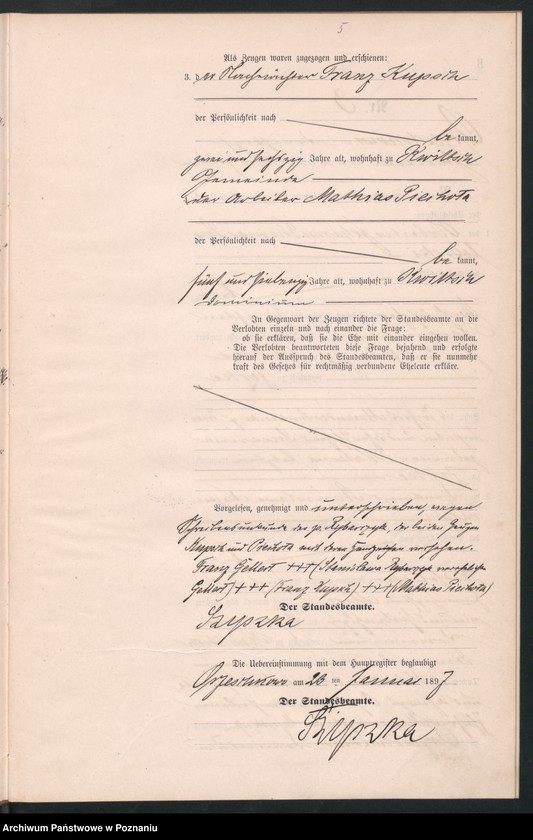 5
Als Zeugen waren zugezogen und erschienen:
3. der Nachtwächter Franz Kupsch
der Persönlichkeit nach
be kannt,
zwei und sechszig Jahre alt, wohnhaft zu Kwiltsch
Gemeinde
4. der Arbeiter Mathias Piechota
der Persönlichkeit nach
be kannt,
fünf und siebenzig Jahre alt, wohnhaft zu Kwiltsch
Dominium
In Gegenwart der Zeugen richtete der Standesbeamte an die
Verlobten einzeln und nach einander die Frage:
ob sie erklären, daß sie die Ehe mit einander eingehen wollen.
Die Verlobten beantworteten diese Frage bejahend und erfolgte
hierauf der Ausspruch des Standesbeamten, daß er sie nunmehr
kraft des Gesetzes für rechtmäßig verbundene Eheleute erkläre.
Vorgelesen, genehmigt und unterschrieben, wegen
Schreibensunkunde der p. Rybarczyk, der beiden Zeugen
Kupsch und Piechota mit deren Handzeichen versehen.
Franz Gellert +++ (Stanislawa Rybarczyk verehelichte
Gellert) +++ (Franz Kupsch) +++ (Mathias Piechota)
Der Standesbeamte.
Die Uebereinstimmung mit dem Hauptregister beglaubigt
Orzeschkowo am 23 ten Januar 1897
Der Standesbeamte.
Archiwum Państwowe w Poznaniu